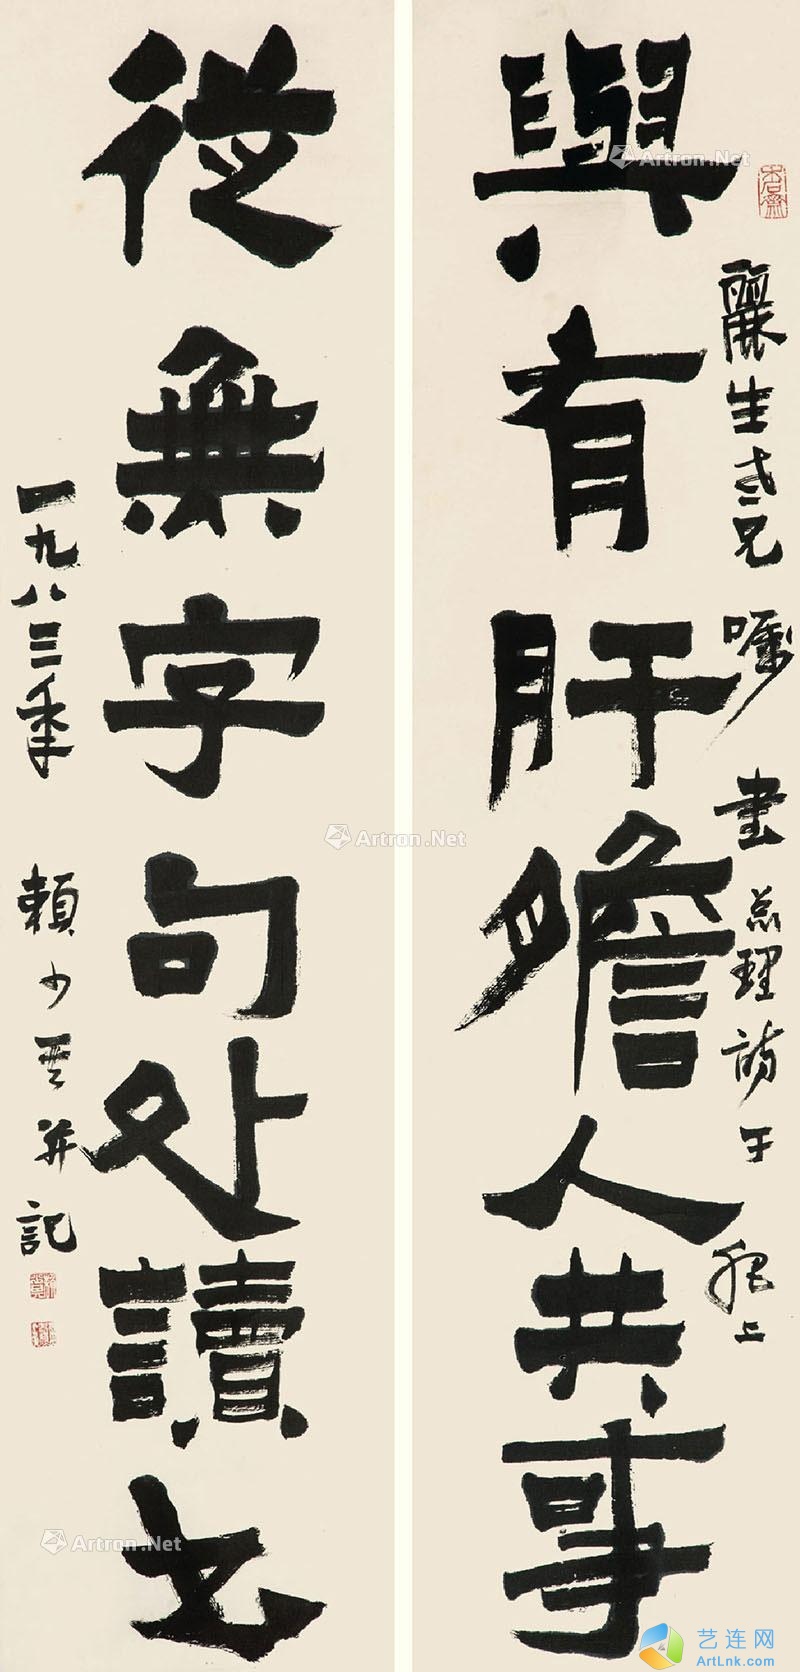 與有肝膽人共事
從無字句处讀书
麗生式兄嘱書总理詩于穗上
一九八三年
賴少其并記
Artron.Net
Artron.Net
Artron.Net
艺连网
ArtLnk.com